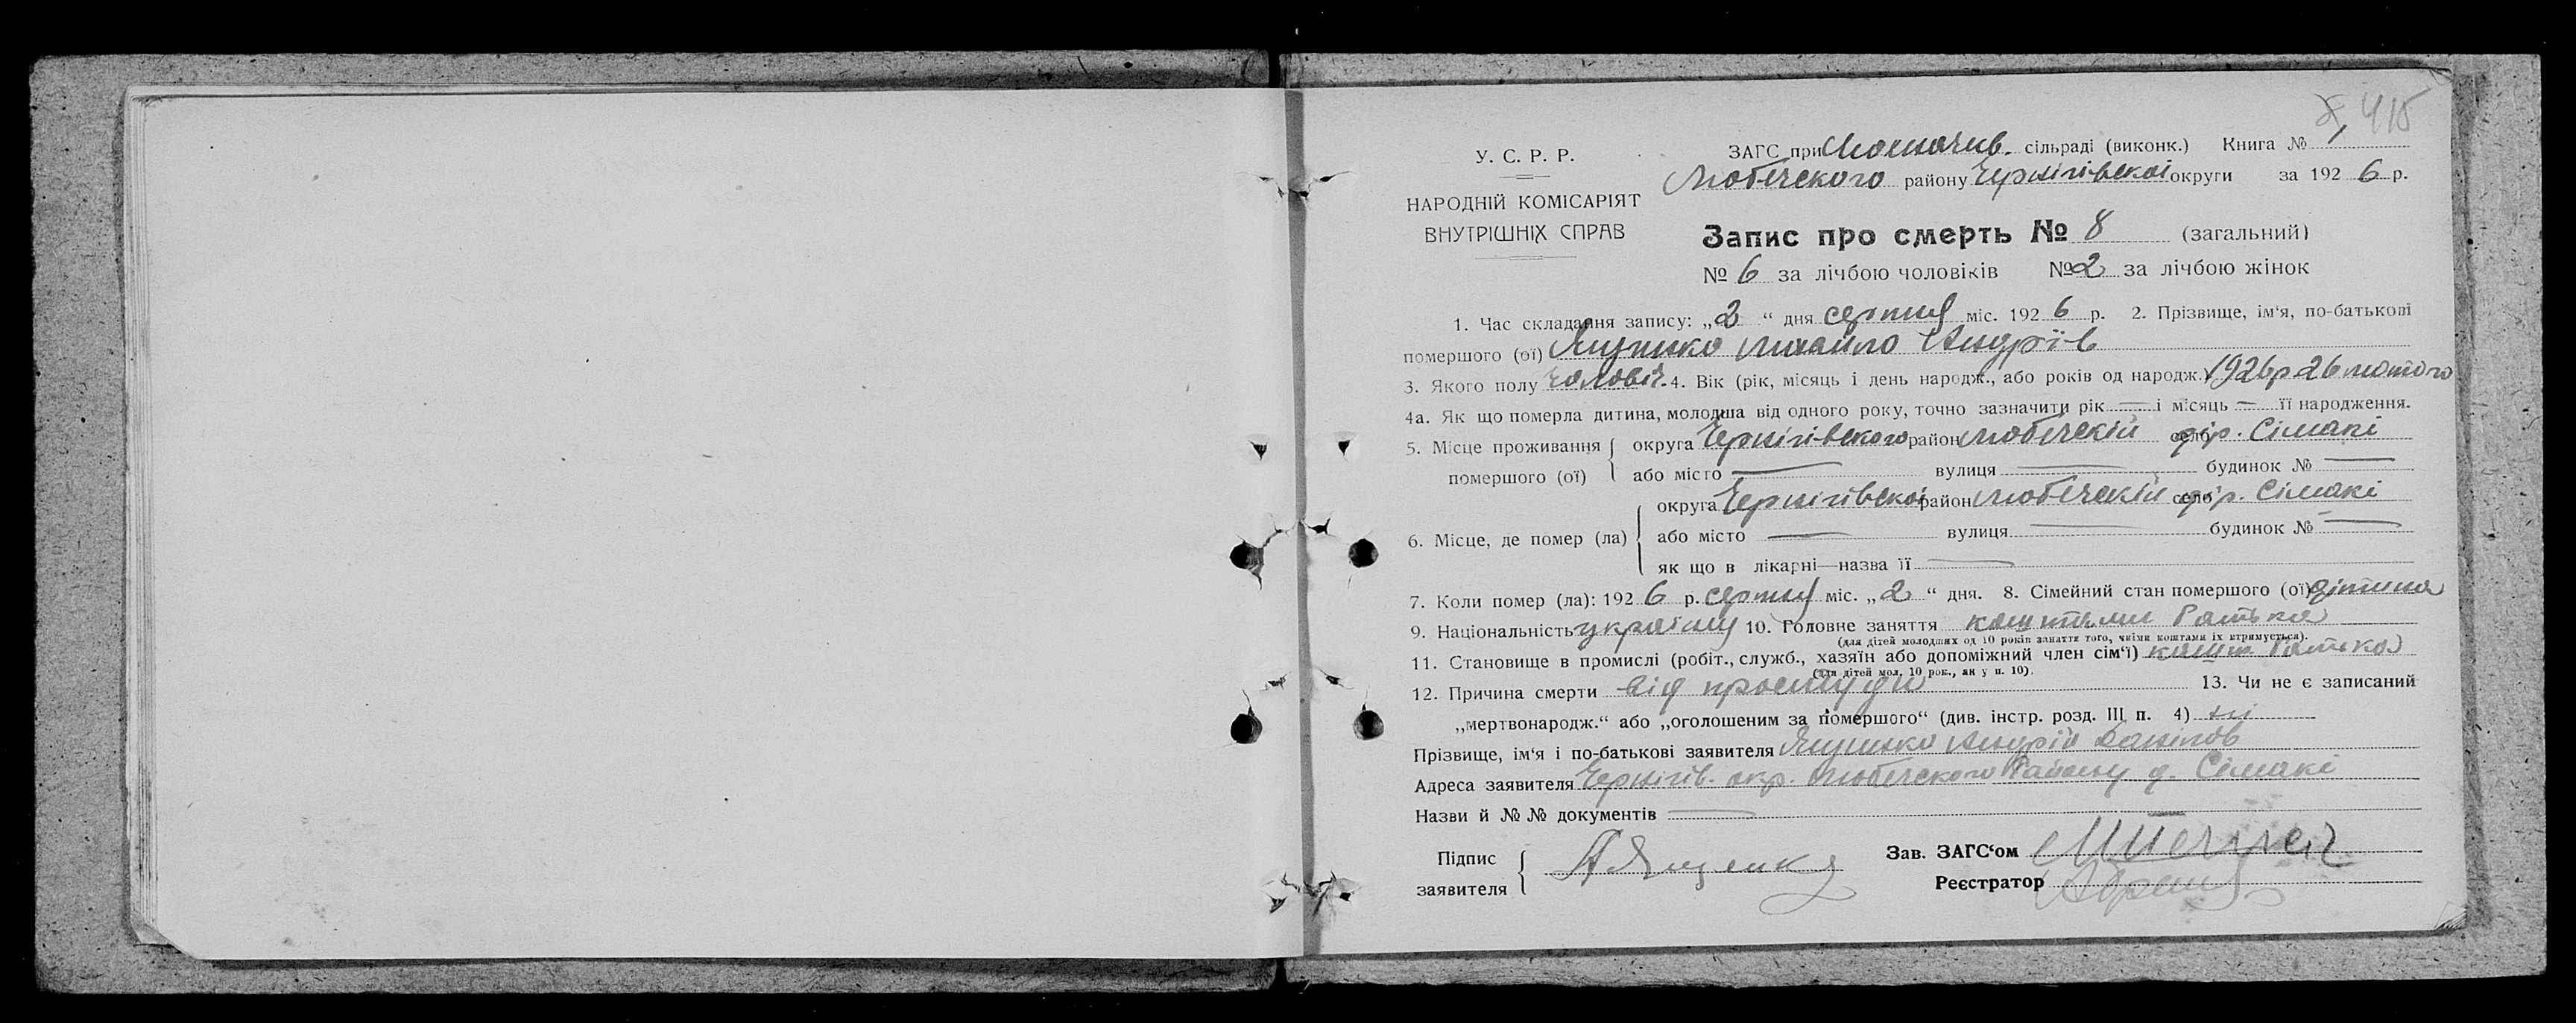 415
У. С. Р. Р.
НАРОДНІЙ КОМІСАРІЯТ
ВНУТРІШНІХ СПРАВ
ЗАГС при сільраді (виконк.) Книга № 1
Любечского району Чернігівскоі округи за 1926 р.
Запис про смерть № 8 (загальний)
№ 6 за лічбою чоловіків № 2 за лічбою жінок
1. Час складання запису: „2“ дня серпня міс. 1926 р. 2. Прізвище, ім‘я, по-батькові
помершого (ої) Ященко Михайло Андріїв
3. Якого полу чоловіч. 4. Вік (рік, місяць і день народж., або років од народж.) 1926 р 26 лютого
4а. Як що померла дитина, молодша від одного року, точно зазначити рік — і місяць — її народження.
5. Місце проживання помершого (ої) округа Чернігівского район Любечскій село др. Сімакі
або місто — вулиця — будинок № —
6. Місце, де помер (ла) округа Чернігівскоі район Любечскій село др. Сімакі
або місто — вулиця — будинок № —
як що в лікарні—назва її —
7. Коли помер (ла): 1926 р. серпня міс. „2“ дня. 8. Сімейний стан помершого (ої) дітина
9. Національність україн 10. Головне заняття коштами батька
(для дітей молодших од 10 років заняття того, чиїми коштами їх утримується).
11. Становище в промислі (робіт., служб., хазяїн або допоміжний член сім‘ї) кошт батька
(для дітей мол. 10 рок., як у п. 10).
12. Причина смерти від простуди 13. Чи не є записаний
„мертвонародж.“ або „оголошеним за помершого“ (див. інстр. розд. III п. 4) ні
Прізвище, ім‘я і по-батькові заявителя Ященко Андрій Данілов
Адреса заявителя Чернігів. окр. Любечского Району д. Сімакі
Назви й №№ документів —
Підпис заявителя А Ященко
Зав. ЗАГС‘ом
Реєстратор